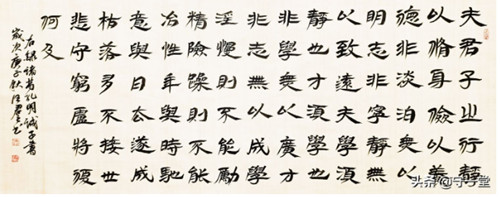 夫君子之行靜
以脩身儉以養
德非淡泊無以
明志非寧靜無
以致遠夫學須
靜也才須學也
非學無以廣才
非志無以成學
淫慢則不能勵
精險躁則不能
冶性年與時馳
意與日去遂成
枯落多不接世
悲守窮廬將復
何及
右録諸葛孔明誡子書
歲次庚子秋汪
头条